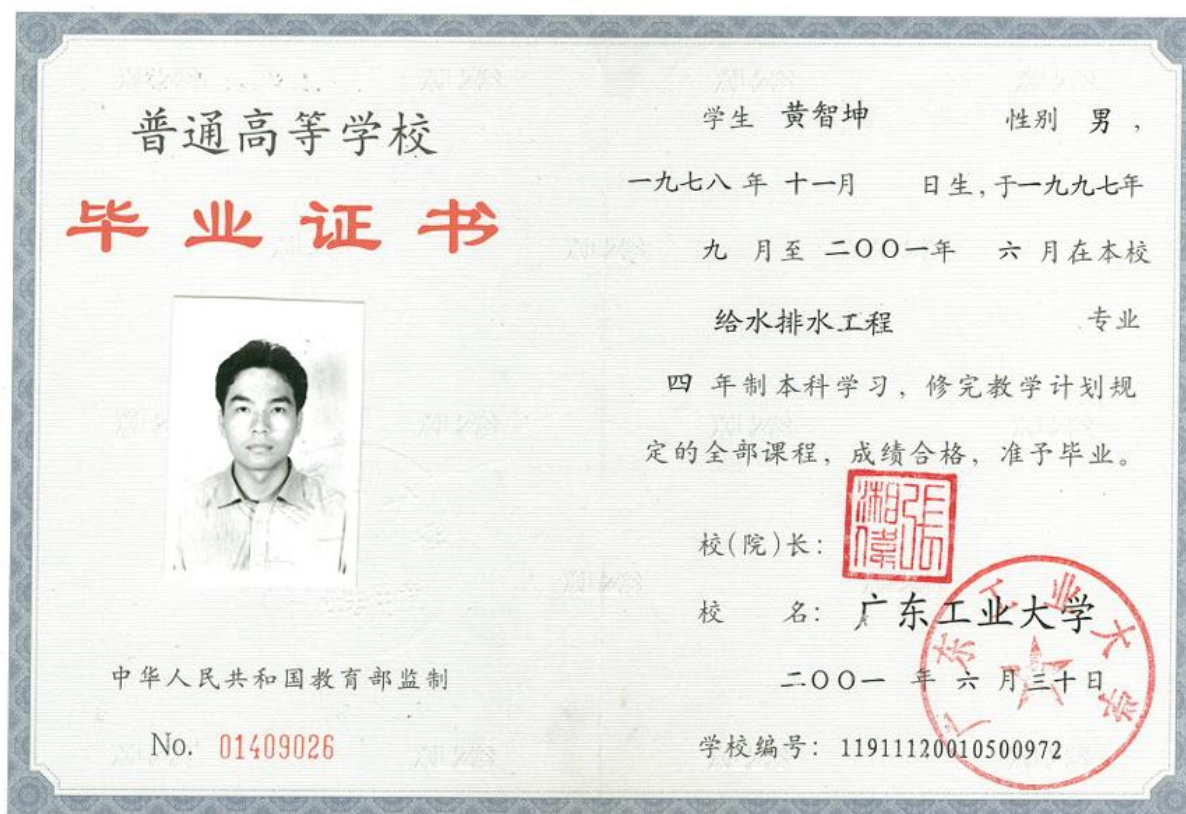 普通高等学校
毕业证书
中华人民共和国教育部监制
No. 01409026
学生 黄智坤 性别 男，
一九七八年 十一月 日生，于一九九七年
九 月至 二〇〇一年 六 月在本校
给水排水工程 专业
四 年制本科学习，修完教学计划规
定的全部课程，成绩合格，准予毕业。
校(院)长：
张湘伟
校 名：广东工业大学
广东工业大学
二〇〇一 年 六 月三十日
学校编号：11911120010500972